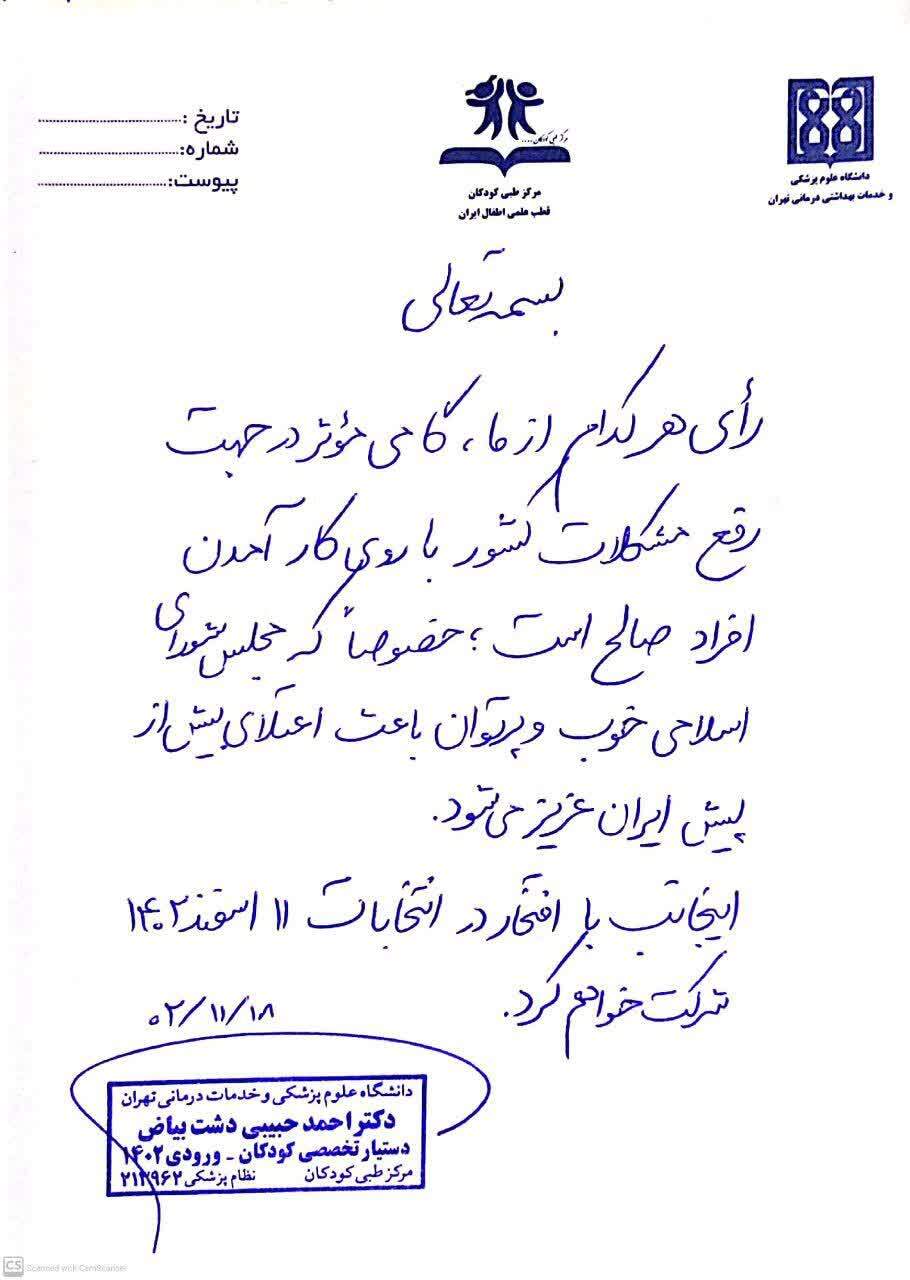 دانشگاه علوم پزشکی
و خدمات بهداشتی درمانی تهران
مرکز طبی کودکان.....
مرکز طبی کودکان
قطب علمی اطفال ایران
تاریخ :
شماره:
پیوست:
بسمه تعالی
رأی هر کدام از ما، گامی مؤثر در جهت
رفع مشکلات کشور با روی کار آمدن
افراد صالح است؛ خصوصاً که مجلس شورای
اسلامی خوب و پرتوان باعث اعتلای بیش از
پیش ایران عزیز می‌شود.
اینجانب با افتخار در انتخابات ۱۱ اسفند ۱۴۰۲
شرکت خواهم کرد.
۰۲/۱۱/۱۸
دانشگاه علوم پزشکی و خدمات درمانی تهران
دکتر احمد حبیبی دشت بیاض
دستیار تخصصی کودکان - ورودی ۱۴۰۲
مرکز طبی کودکان نظام پزشکی ۲۱۲۹۶۲
CS Scanned with CamScanner